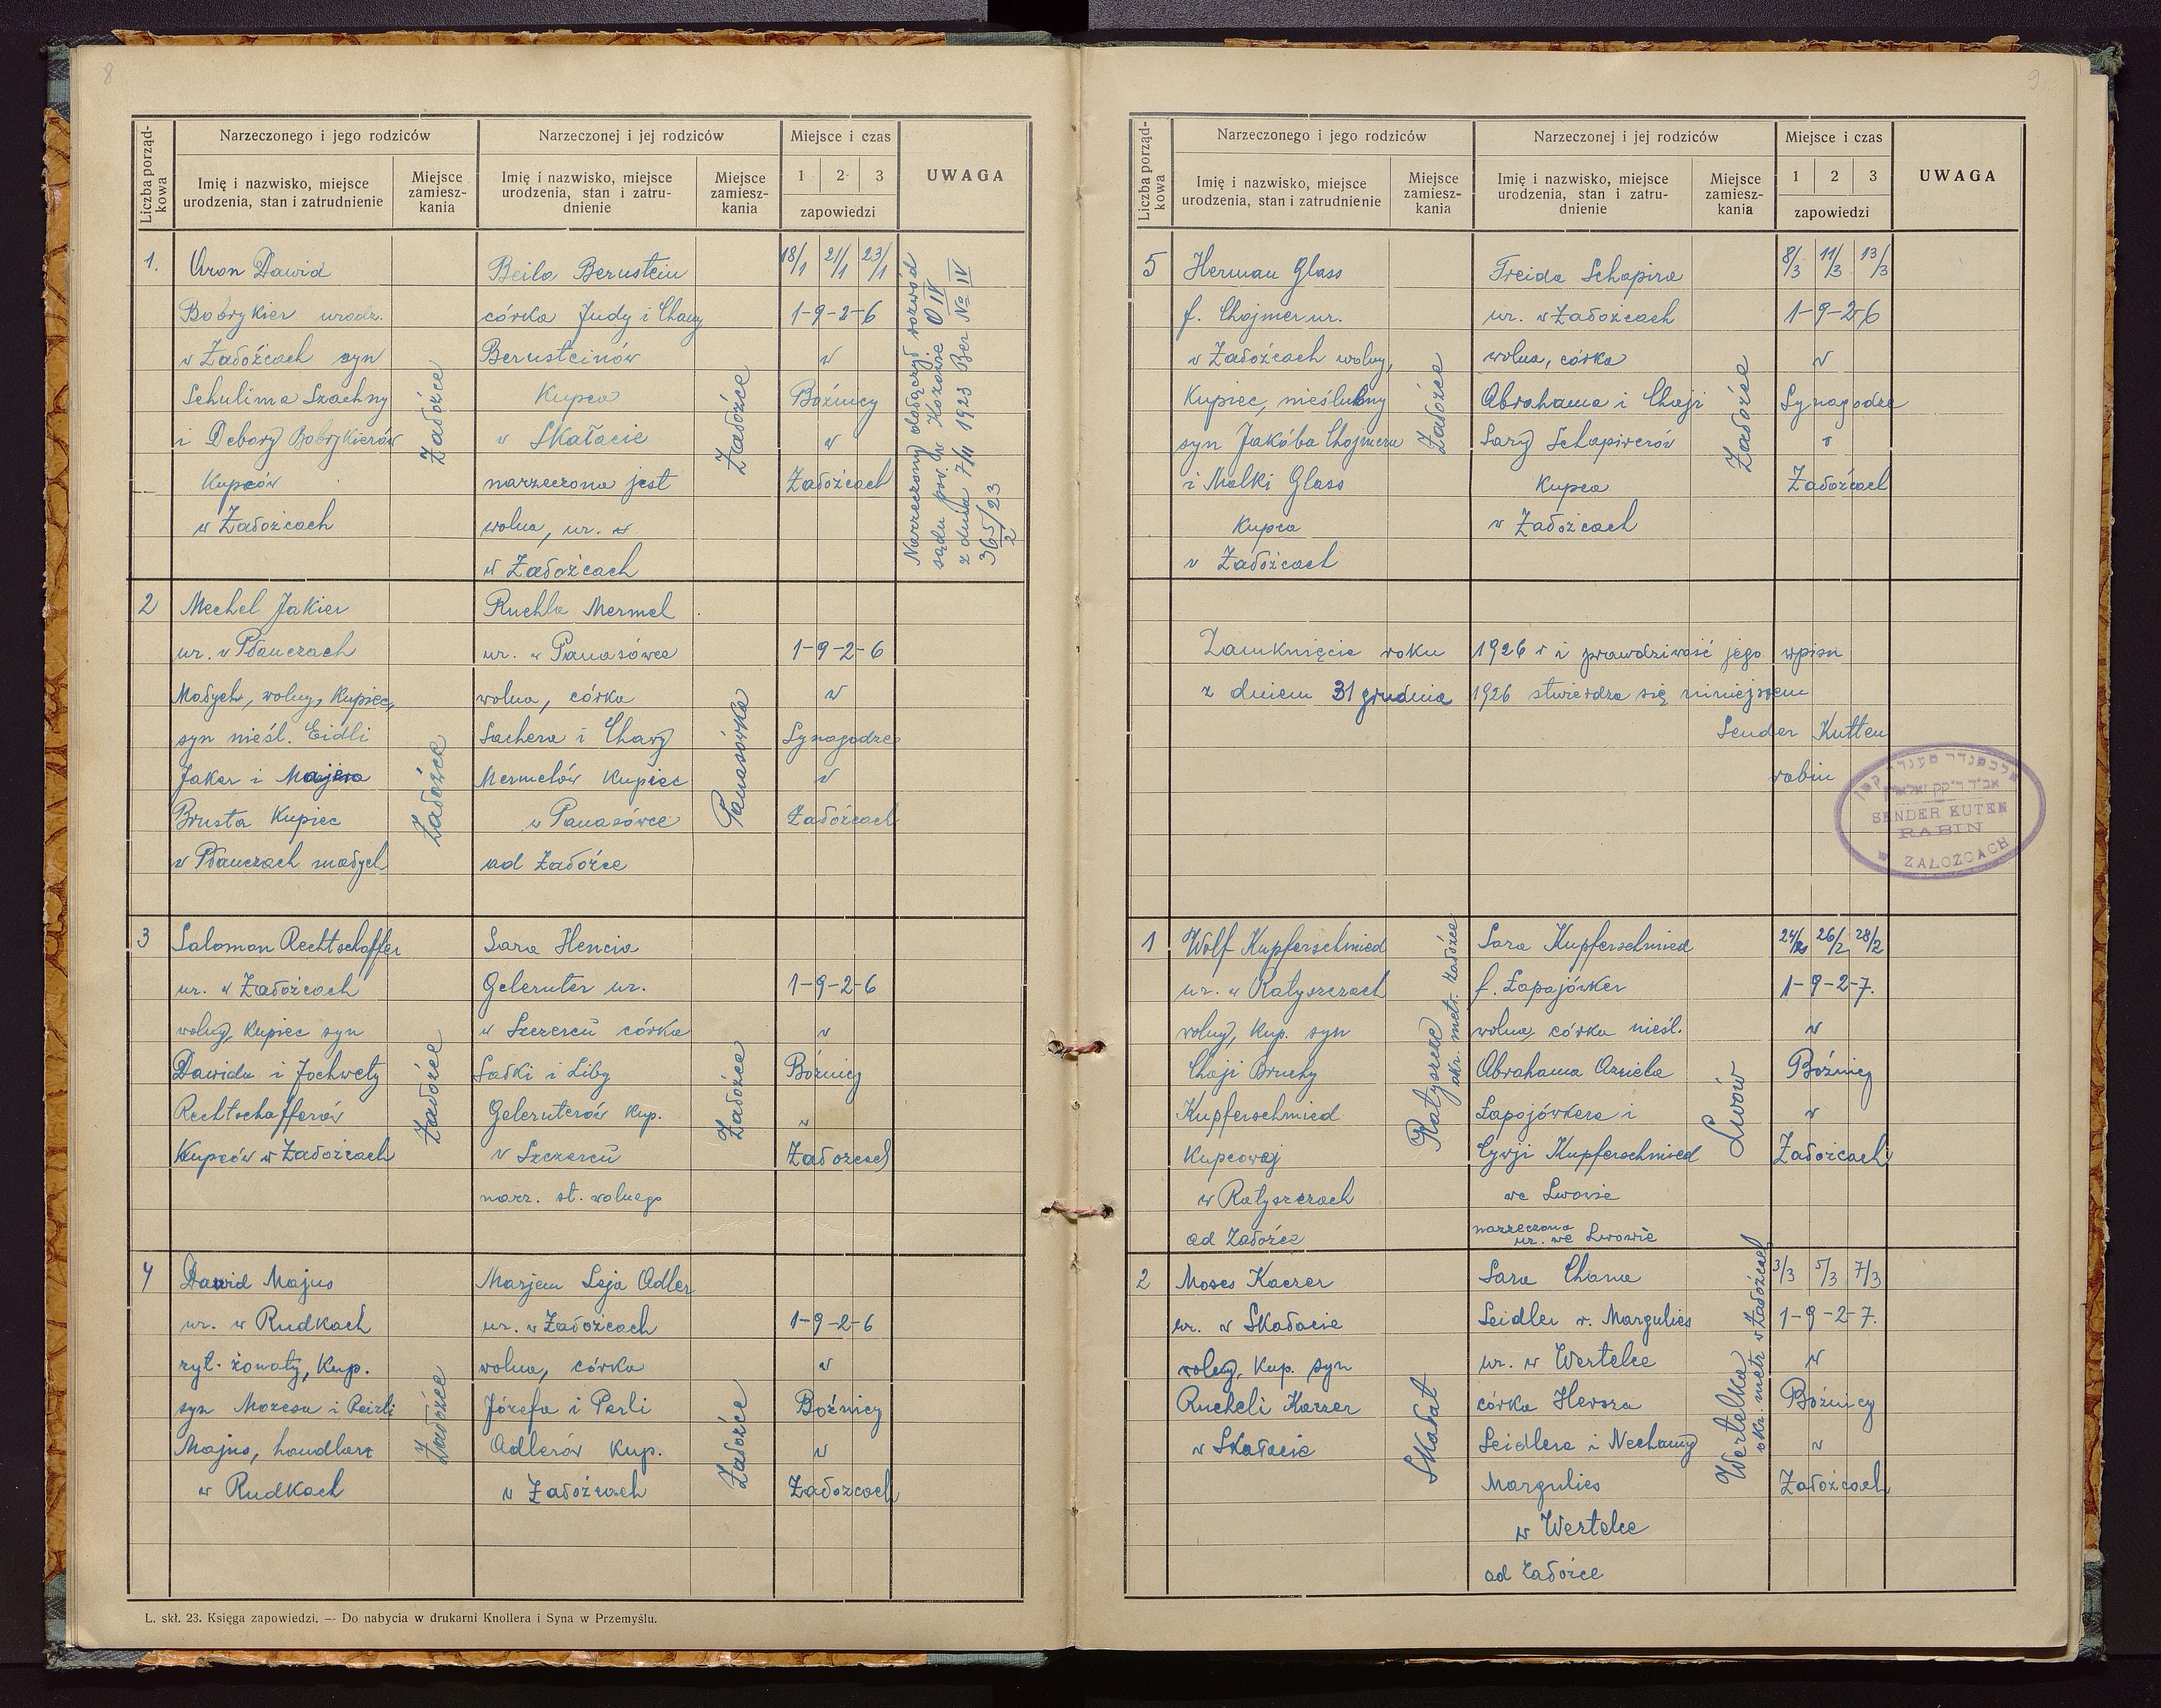 8
Liczba porząd-
kowa
Narzeczonego i jego rodziców
Imię i nazwisko, miejsce
urodzenia, stan i zatrudnienie
Miejsce
zamiesz-
kania
Narzeczonej i jej rodziców
Imię i nazwisko, miejsce
urodzenia, stan i zatru-
dnienie
Miejsce
zamiesz-
kania
Miejsce i czas
1 2 3
zapowiedzi
UWAGA
1.
Aron Dawid
Bobrykier urodz.
w Założcach syn
Schulima Szachny
i Debory Bobrykierów
Kupców
w Założcach
Założce
Beila Bernstein
córka Judy i Chany
Bernsteinów
Kupca
w Skałacie
narzeczona jest
wolna, ur. w
w Założcach
Założce
18/1 21/1 23/1
1-9-2-6
w
Bóżnicy
w
Założcach
Narzeczony dołączył rozwód
sądu pow. w Kozowie O IV
z dnia 7/II 1923 Ber № IV
365/23
2
2
Mechel Jakier
ur. w Płauczach
Małych, wolny, Kupiec,
syn nieśl. Eidli
Jaker i Majera
Brusta Kupiec
w Płauczach małych
Założce
Ruchla Mermel
ur. w Panasówce
wolna, córka
Sachera i Chawy
Mermelów Kupiec
w Panasówce
ad Założce
Panasówka
1-9-2-6
w
Synagodze
w
Założcach
3
Salomon Rechtschaffer
ur. w Założcach
wolny, Kupiec syn
Dawida i Jochwety
Rechtschafferów
Kupców w Założcach
Założce
Sara Hencia
Gelernter ur.
w Szczercu córka
Salki i Liby
Gelernterów Kup.
w Szczercu
narz. st. wolnego
Założce
1-9-2-6
w
Bóżnicy
w
Założcach
4
Dawid Majus
ur. w Rudkach
ryt. żonaty, Kup.
syn Mozesa i Reizli
Majus, handlarz
w Rudkach
Założce
Marjem Leja Adler
ur. w Założcach
wolna, córka
Józefa i Perli
Adlerów Kup.
w Założcach
Założce
1-9-2-6
w
Bóźnicy
w
Założcach
L. skł. 23. Księga zapowiedzi. — Do nabycia w drukarni Knollera i Syna w Przemyślu.
9
Liczba porząd-
kowa
Narzeczonego i jego rodziców
Imię i nazwisko, miejsce
urodzenia, stan i zatrudnienie
Miejsce
zamiesz-
kania
Narzeczonej i jej rodziców
Imię i nazwisko, miejsce
urodzenia, stan i zatru-
dnienie
Miejsce
zamiesz-
kania
Miejsce i czas
1 2 3
zapowiedzi
UWAGA
5
Herman Glass
f. Chojmer ur.
w Założcach wolny,
Kupiec, nieślubny
syn Jakóba Chojmera
i Malki Glass
Kupca
w Założcach
Założce
Freida Schapira
ur. w Założcach
wolna, córka
Abrahama i Chaji
Sary Schapirerów
Kupca
w Założcach
Założce
8/3 11/3 13/3
1-9-2-6
w
Synagodze
w
Założcach
Zamknięcie roku 1926 r i prawdziwość jego wpisu
z dniem 31 grudnia 1926 stwierdza się niniejszem
Sender Kutten
rabin
SENDER KUTEN
RABIN
w ZAŁOŻCACH
1
Wolf Kupferschmied
ur. w Ratyszczach
wolny, Kup. syn
Chaji Bruchy
Kupferschmied
Kupcowej
w Ratyszczach
ad Założce
Ratyszcze
okr. metr. Założce
Sara Kupferschmied
f. Łapajówker
wolna, córka nieśl.
Abrahama Azriela
Łapajówkera i
Cywji Kupferschmied
we Lwowie
narzeczona
ur. we Lwowie
Lwów
24/2 26/2 28/2
1-9-2-7.
w
Bóźnicy
w
Założcach
2
Moses Kaczer
ur. w Skałacie
wolny, Kup. syn
Rucheli Karzer
w Skałacie
Skałat
Sara Chana
Seidler v. Margulies
ur. w Wertelce
córka Hersza
Seidlera i Nechamy
Margulies
w Wertelce
ad Założce
Wertelka
okr. metr w Założcach
3/3 5/3 7/3
1-9-2-7.
w
Bóźnicy
w
Założcach